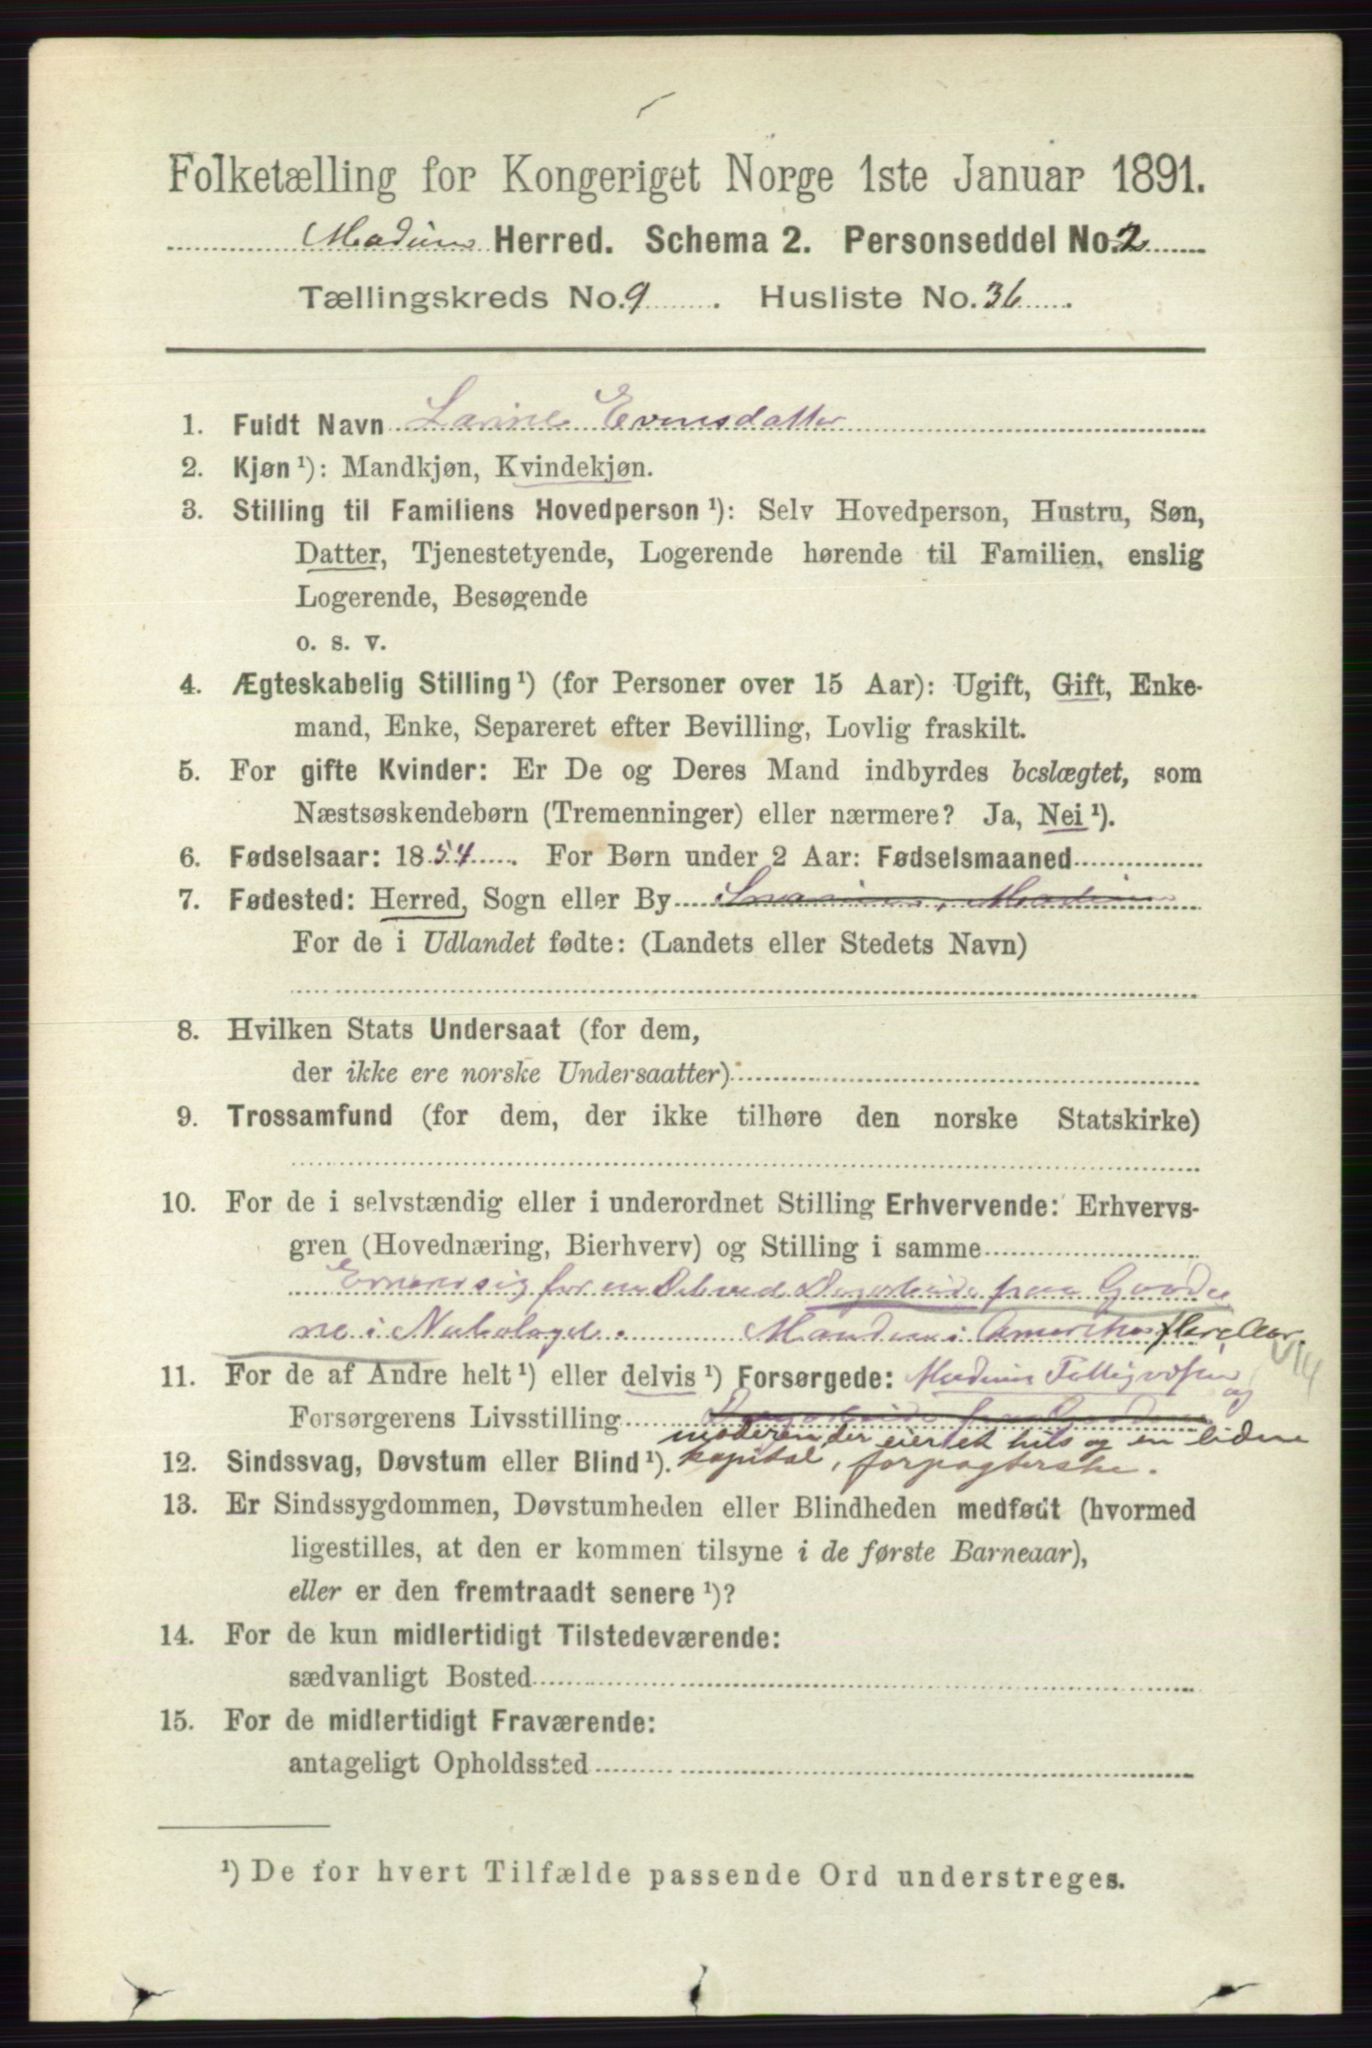 Folketælling for Kongeriget Norge 1ste Januar 1891.
Modum Herred. Schema 2. Personseddel No. 2
Tællingskreds No. 9. Husliste No. 36.
1. Fuldt Navn Larine Evensdatter
2. Kjøn ¹): Mandkjøn, Kvindekjøn.
3. Stilling til Familiens Hovedperson ¹): Selv Hovedperson, Hustru, Søn,
Datter, Tjenestetyende, Logerende hørende til Familien, enslig
Logerende, Besøgende
o. s. v.
4. Ægteskabelig Stilling ¹) (for Personer over 15 Aar): Ugift, Gift, Enke-
mand, Enke, Separeret efter Bevilling, Lovlig fraskilt.
5. For gifte Kvinder: Er De og Deres Mand indbyrdes beslægtet, som
Næstsøskendebørn (Tremenninger) eller nærmere? Ja, Nei ¹).
6. Fødselsaar: 1854. For Børn under 2 Aar: Fødselsmaaned
7. Fødested: Herred, Sogn eller By Snarum, Modum
For de i Udlandet fødte: (Landets eller Stedets Navn)
8. Hvilken Stats Undersaat (for dem,
der ikke ere norske Undersaatter)
9. Trossamfund (for dem, der ikke tilhøre den norske Statskirke)
10. For de i selvstændig eller i underordnet Stilling Erhvervende: Erhvervs-
gren (Hovednæring, Bierhverv) og Stilling i samme
Ernærer sig for en Del ved Dagarbeide paa Gaarde
ne i Nabolaget. Manden i Amerika flere Aar.
11. For de af Andre helt ¹) eller delvis ¹) Forsørgede: Modum og
Forsørgerens Livsstilling Dagarbeide
moderen, der eier et hus og en liden
12. Sindssvag, Døvstum eller Blind ¹). kapital, forpagterske.
13. Er Sindssygdommen, Døvstumheden eller Blindheden medfødt (hvormed
ligestilles, at den er kommen tilsyne i de første Barneaar),
eller er den fremtraadt senere ¹)?
14. For de kun midlertidigt Tilstedeværende:
sædvanligt Bosted
15. For de midlertidigt Fraværende:
antageligt Opholdssted
¹) De for hvert Tilfælde passende Ord understreges.